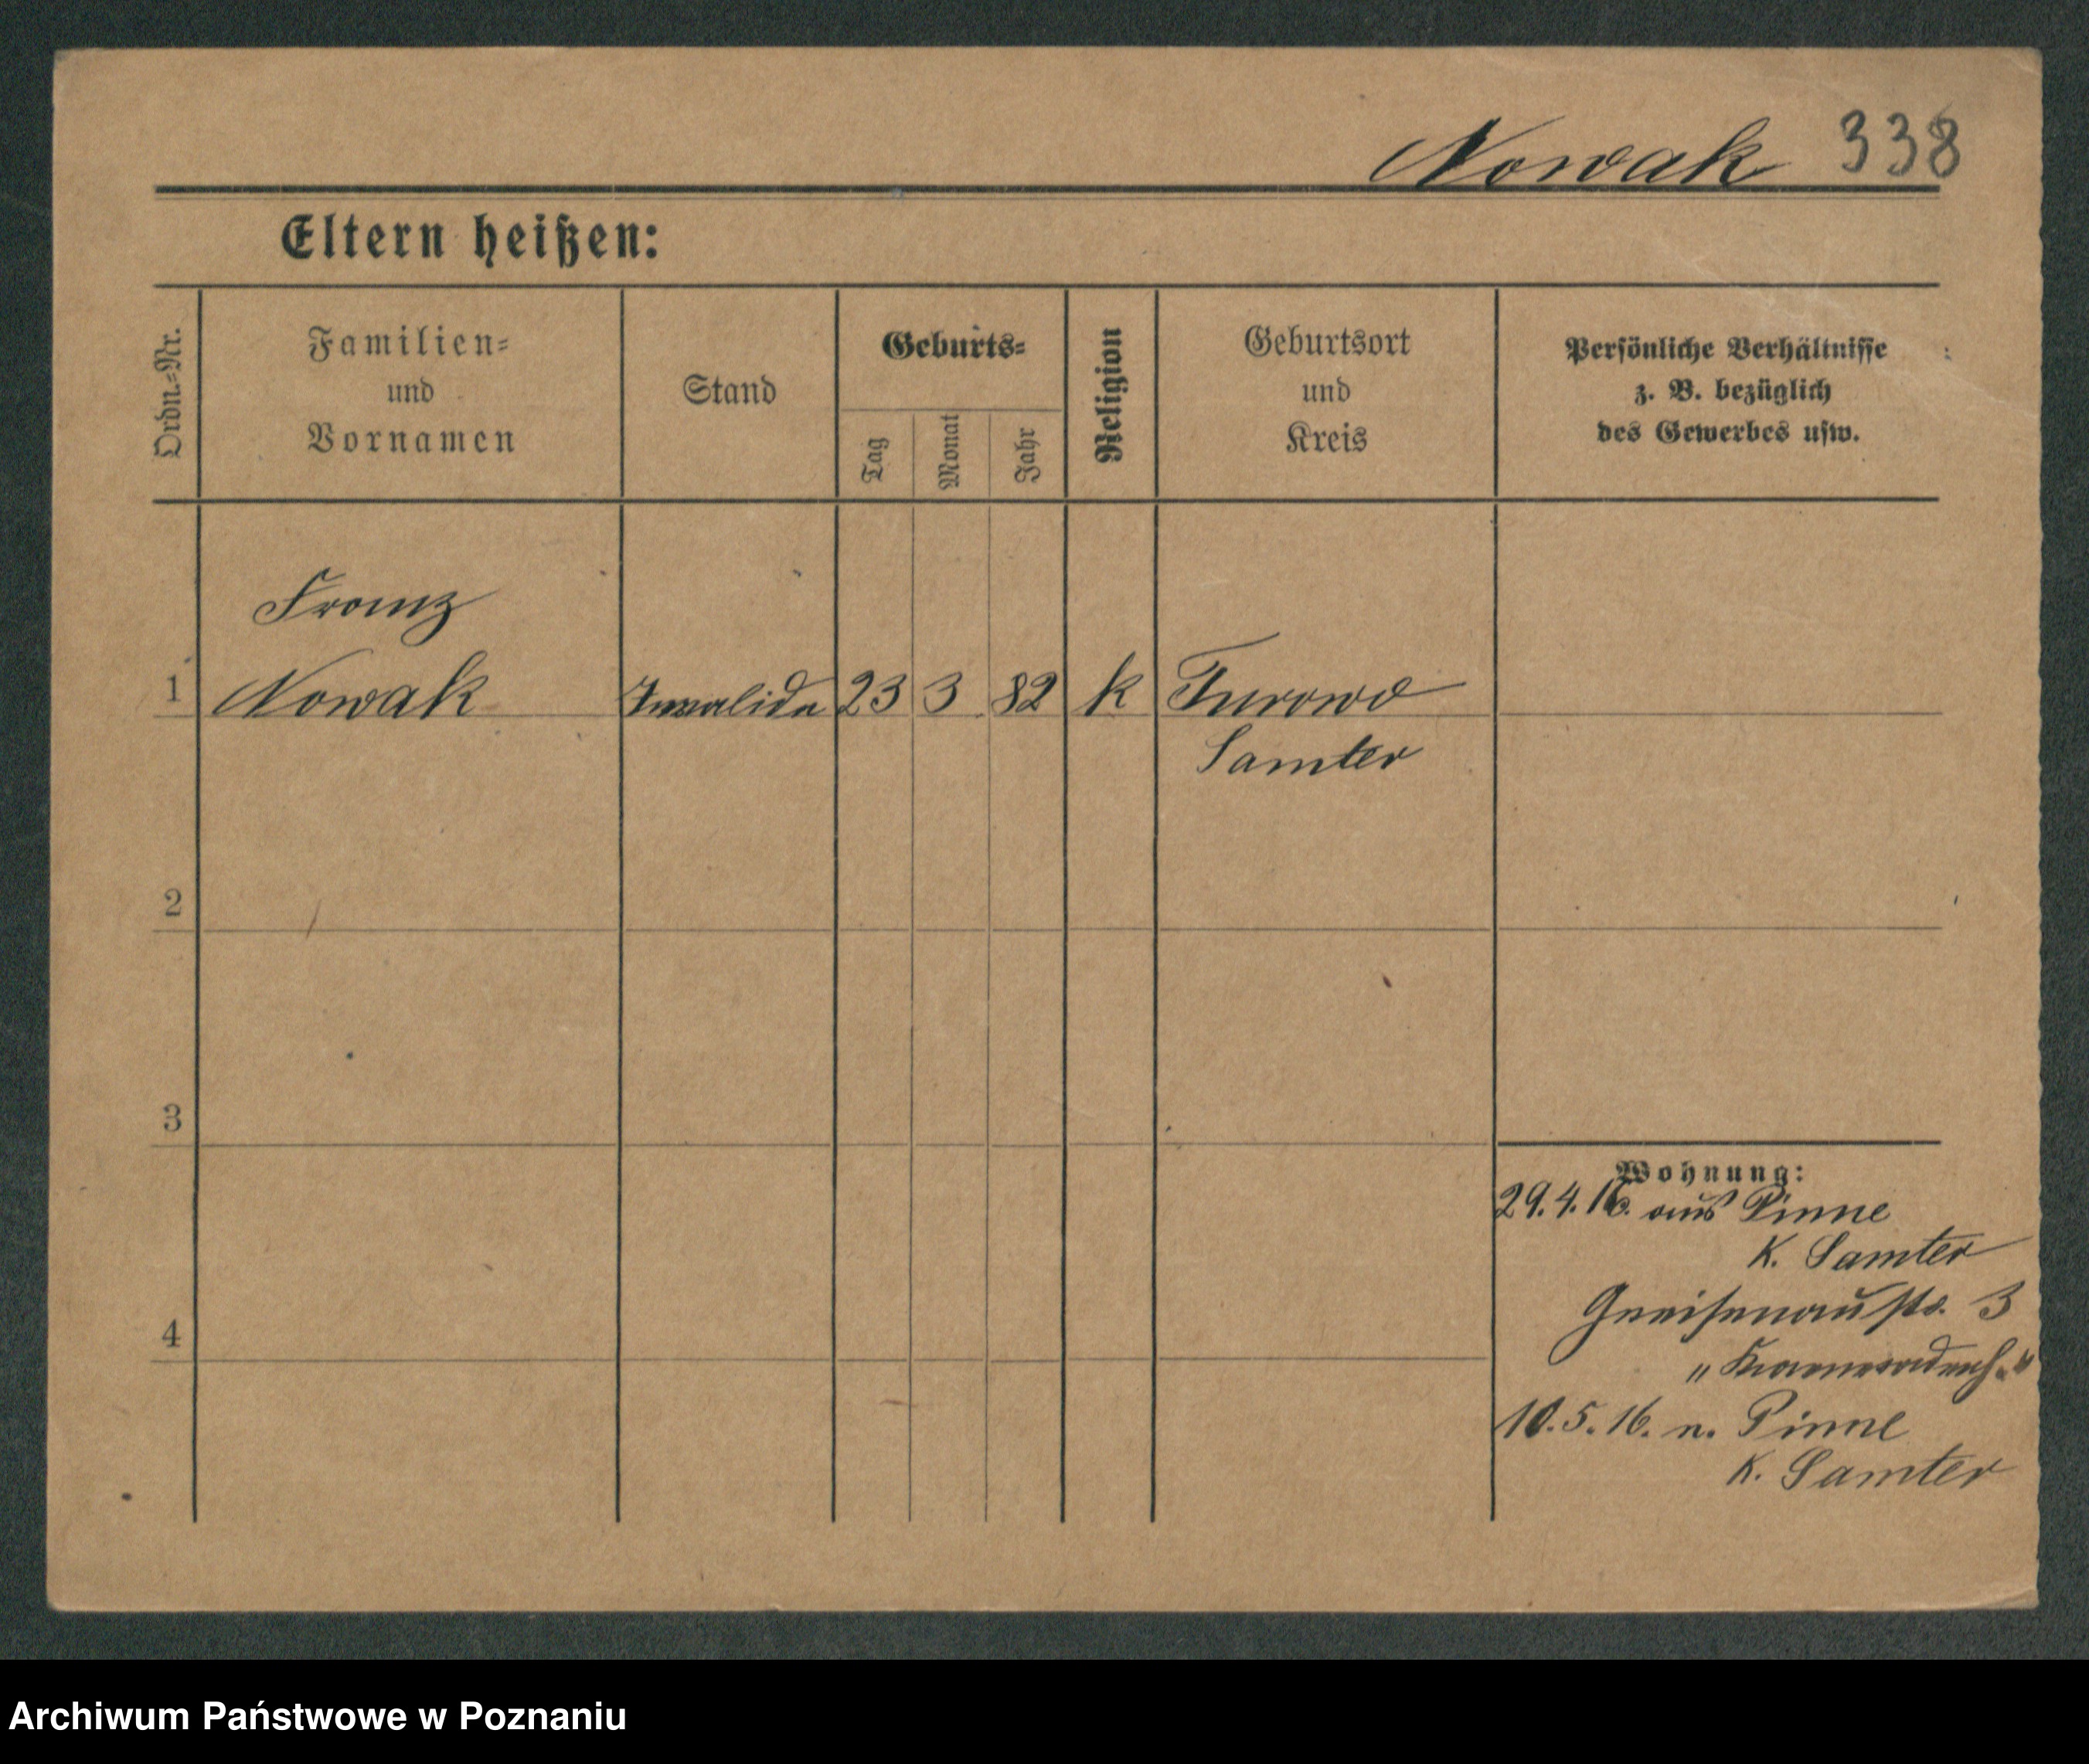 Nowak 338
Eltern heißen:
Ordn.-Nr.
Familien-
und
Vornamen
Stand
Geburts-
Tag
Monat
Jahr
Religion
Geburtsort
und
Kreis
Persönliche Verhältnisse
z. B. bezüglich
des Gewerbes usw.
Franz
1 Nowak Invalide 23 3 82 k Turowo
Samter
2
3
4
Wohnung:
29.4.16. aus Pinne
K. Samter
Gneisenaustr. 3
10.5.16. n. Pinne
K. Samter
Archiwum Państwowe w Poznaniu